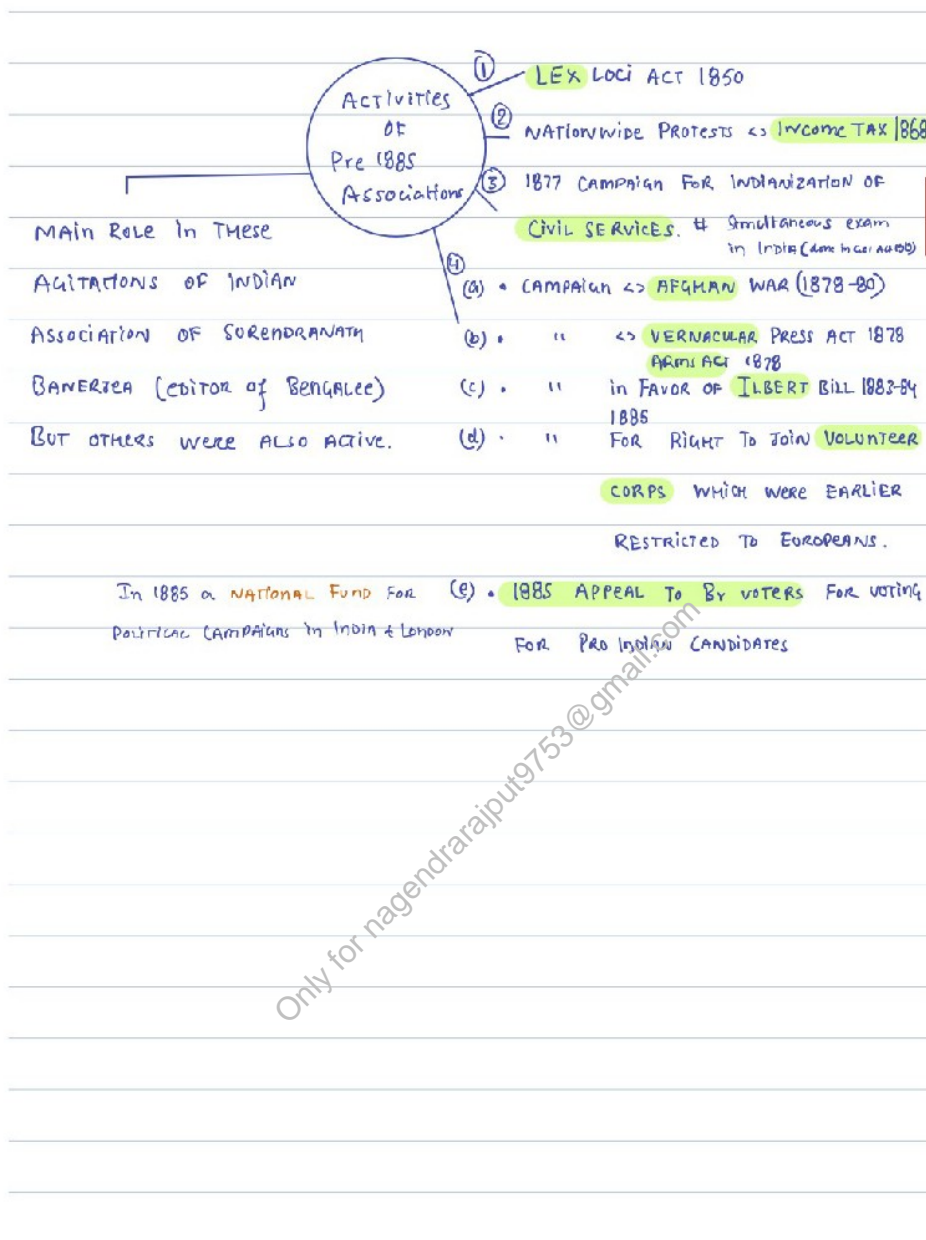 ACTIVITIES
OF
Pre 1885
Associations
① LEX LOCI ACT 1850
② NATIONWIDE PROTESTS <> INCOME TAX 1868
③ 1877 CAMPAIGN FOR INDIANIZATION OF
CIVIL SERVICES. # Simultaneous exam
in INDIA
④
(a) • CAMPAIGN <> AFGHAN WAR (1878-80)
(b) • " <> VERNACULAR PRESS ACT 1878
ARMS ACT 1878
(c) • " in FAVOR OF ILBERT BILL 1883-84
1885
(d) • " FOR RIGHT TO JOIN VOLUNTEER
CORPS WHICH WERE EARLIER
RESTRICTED TO EUROPEANS.
(e) • 1885 APPEAL TO Br VOTERS FOR VOTING
FOR PRO INDIAN CANDIDATES
MAIN ROLE IN THESE
AGITATIONS OF INDIAN
ASSOCIATION OF SURENDRANATH
BANERJEA (EDITOR of BENGALEE)
BUT OTHERS WERE ALSO ACTIVE.
In 1885 a NATIONAL FUND FOR
POLITICAL CAMPAIGNS in INDIA & LONDON
Only for nagendrarajput9753@gmail.com